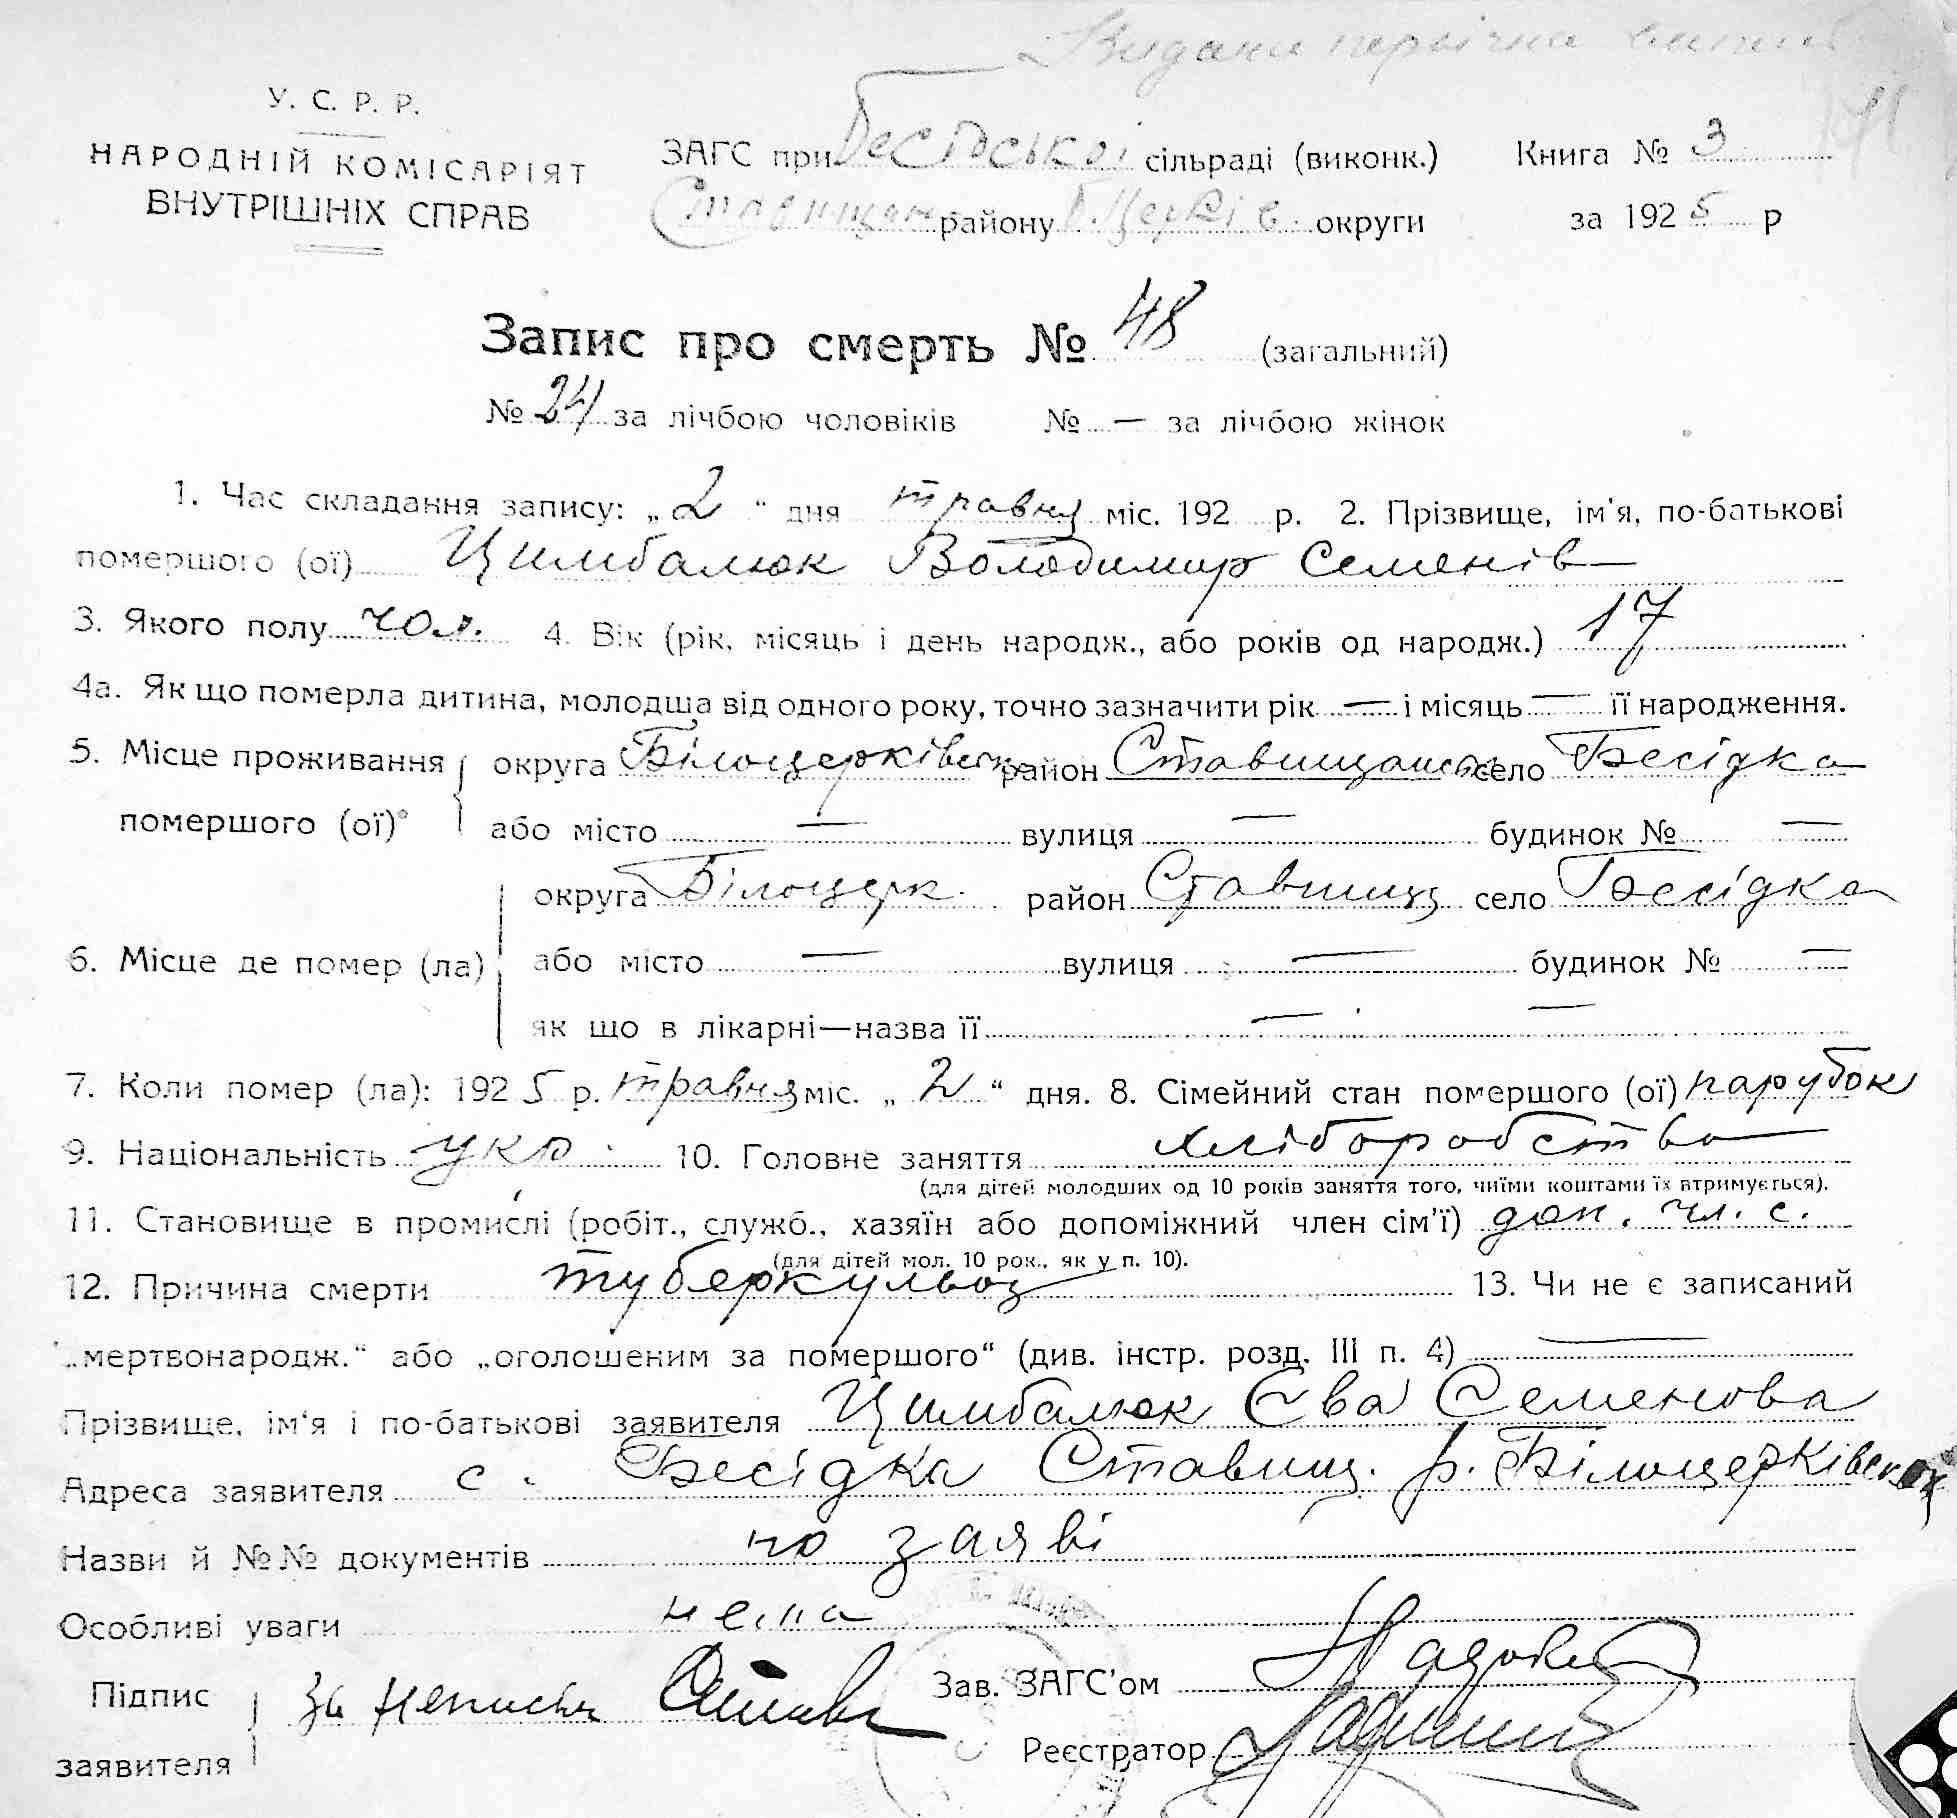 Видана первічна
У. С. Р. Р.
НАРОДНІЙ КОМІСАРІЯТ
ВНУТРІШНІХ СПРАВ
ЗАГС при Бесідської сільраді (виконк.) Книга № 3
Ставищан району Б. Церків. округи за 1925 р
Запис про смерть № 48 (загальний)
№ 24 за лічбою чоловіків № — за лічбою жінок
1. Час складання запису: „2“ дня травня міс. 192 р. 2. Прізвище, ім'я, по-батькові
помершого (ої) Цимбалюк Володимир Семенів
3. Якого полу чол. 4. Вік (рік, місяць і день народж., або років од народж.) 17
4а. Як що померла дитина, молодша від одного року, точно зазначити рік — і місяць — її народження.
5. Місце проживання округа Білоцерківськ район Ставищанськ село Бесідка
помершого (ої) або місто — вулиця — будинок № —
округа Білоцерк. район Ставищ село Бесідка
6. Місце де помер (ла) або місто — вулиця — будинок № —
як що в лікарні—назва її — —
7. Коли помер (ла): 1925 р. травня міс. „2“ дня. 8. Сімейний стан помершого (ої) парубок
9. Національність укр. 10. Головне заняття хліборобство
(для дітей молодших од 10 років заняття того, чиїми коштами їх втримується).
11. Становище в промислі (робіт., служб., хазяїн або допоміжний член сім'ї) доп. чл. с.
(для дітей мол. 10 рок., як у п. 10).
12. Причина смерти туберкульоз 13. Чи не є записаний
„мертвонародж.“ або „оголошеним за помершого“ (див. інстр. розд. III п. 4) —
Прізвище, ім'я і по-батькові заявителя Цимбалюк Єва Семенова
Адреса заявителя с. Бесідка Ставищ. р. Білоцерківської
Назви й №№ документів по заяві
Особливі уваги нема
Підпис за неписьм Зав. ЗАГС'ом
заявителя Реєстратор